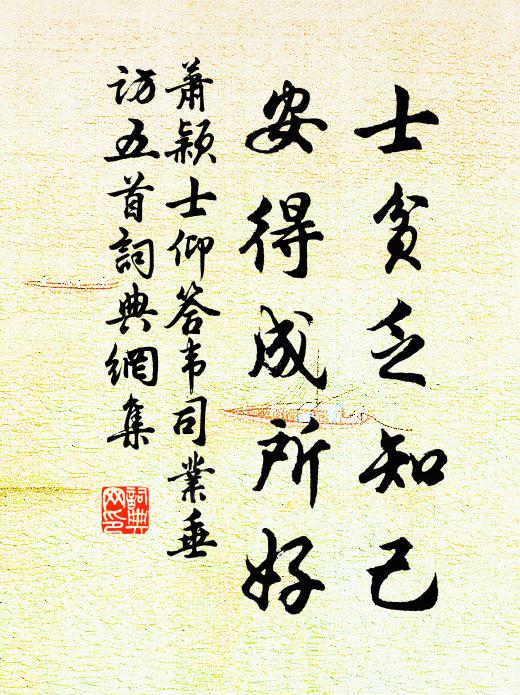 士貧乏知己
安得成所好
蕭穎士仰答韦司業垂
訪五首詞典網集
詞典
网印